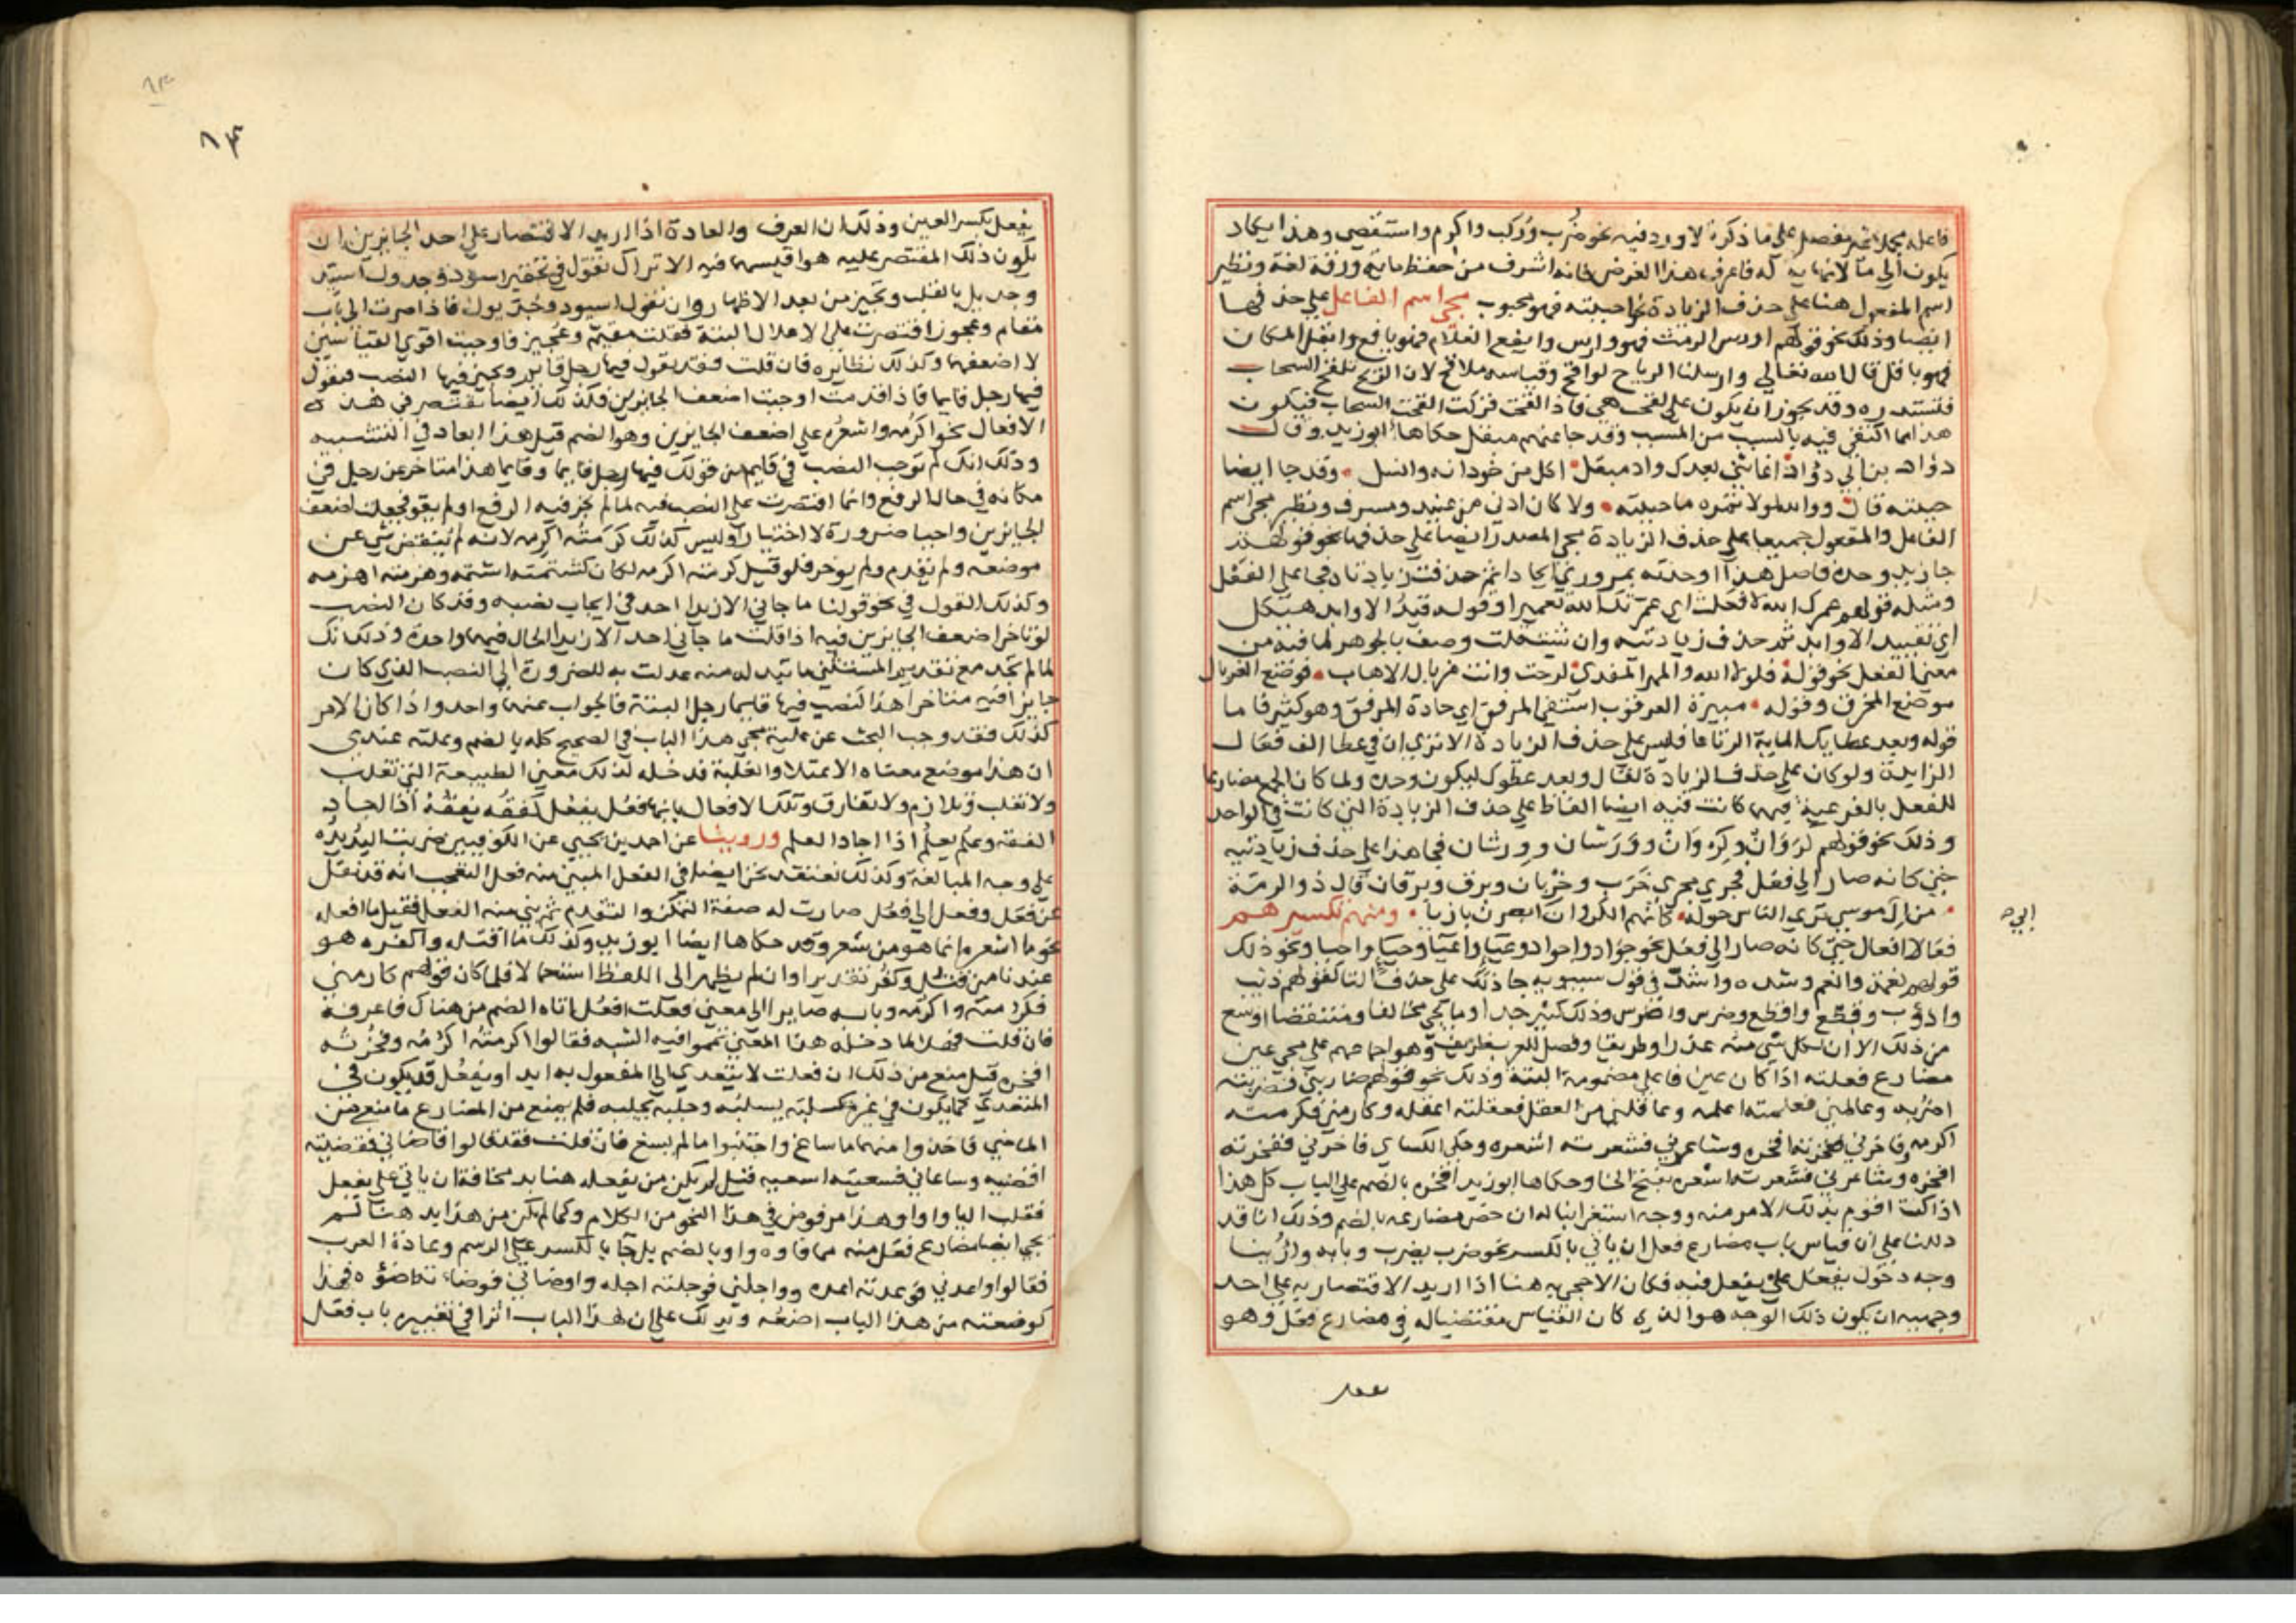 فاعله مجملا ثم نفصل على ما ذكرة لاورد فيه نحو ضُرب ورُكب واكرم واستقصي وهذا يكاد
يكون الي ما لا نهاية له فاعرف هذا الغرض فانه اشرف من حفظ ماية ورقة لغة ونظير
اسم المفعول هنا على حذف الزيادة نحو احببته فهو محبوب مجي اسم الفاعل على حذفها
ايضا وذلك نحو قولهم اورس الرمث فهو وارس وايفع الغلام فهو يافع وابقل المكان
فهو باقل قال الله تعالي وارسلنا الرياح لواقح وقياسه ملاقح لان الريح تلقح السحاب
فتستدره وقد يجوز ان يكون على لقحت هي فاذا لقحت فزكت القحت السحاب فيكون
هذا مما اكتفي فيه بالسبب من المسبب وقد جا عنهم مبقل حكاها ابو زيد وقال
دؤاد بن ابي دؤاد اعاشني بعدك واد مبقل اكل من حوذانه وانسل وقد جا ايضا
حببته قال ووالله لولا تمره ما حببته ولا كان ادني من عبيد ومشرف ونظير مجي اسم
الفاعل والمفعول جميعا على حذف الزيادة مجي المصدر ايضا على حذفها نحو قولهم
جا زيد وحده فاصل هذا اوحدته بمروري ايحادا ثم حذفت زيادتاه فجا على الفعل
ومثله قولهم عمرك الله لا فعلت اي عمرتك الله تعميرا وقوله قيدُ الاوابد هيكل
اي تقييد الاوابد ثم حذف زيادتيه وان شئت قلت وصف بالجوهر لما فيه من
معني الفعل نحو قوله فلولا الله والمهر المفدي لرحت وانت غربال الاهاب فوضع الغربال
موضع المخرق وقوله مبيرة العرقوب اشفي المرفق اي حادة المرفق وهو كثير فاما
قوله وبعد عطايك الماية الرتاعا فليس على حذف الزيادة الا تري ان في عطا الف فعال
الزايدة ولو كان على حذف الزيادة لقال وبعد عطوك ليكون وحده ولما كان الجمع مضارعا
للفعل بالفرعية فيهما كانت فيه ايضا الفاظ على حذف الزيادة التي كانت في الواحد
وذلك نحو قولهم كَرَوَانٌ وكِرْوَانٌ ووَرَشان ووِرشان فجا هذا على حذف زيادتيه
حتي كانه صار الي فَعَل فجري مجري خَرَب وخِرْبان وبرق وبرقان قال ذو الرمة
من ال موسي تري الناس حوله كانهم الكروان ابصرن بازيا ومنهم تكسيرهم
ابي ح
فعالا افعال حتي كانه صار الي فَعَل نحو جواد واجواد وعيا واعيا وحيا واحيا ونحو ذلك
قولهم نعمة وانعم وشدة واشد في قول سيبويه جا ذلك على حذف التا كقولهم ذيب
واذؤب وقطع واقطع وضرس واضرس وذلك كثير جدا وما يجي مخالفا ومنتقضا اوسع
من ذلك الا ان لكل شي منه عذرا وطريقا وفصل للعرب طريف وهو اجماعهم على مجي عين
مضارع فعلته اذا كان عين فاعلي مضمومة البتة وذلك نحو قولهم ضاربني فضربته
اضربه وعالمني فعلمته اعلمه وعاقلني من العقل فعقلته اعقله وكارمني فكرمته
اكرمه وفاخرني ففخرته افخره وشاعرني فشعرته اشعره وحكي الكساي فاخرني ففخرته
افخره وشاعرني فشعرته اشعره بفتح الخا وحكاها ابو زيد افخره بالضم على الباب كل هذا
اذا كنت اقوم بذلك الامر منه ووجه استغرابنا له ان خص مضارعه بالضم وذلك انا قد
دللنا على ان قياس باب مضارع فعل ان ياتي بالكسر نحو ضرب يضرب وبابه وارُينا
وجه دخول يفعُل على يفعِل فيه فكان الاحجي به هنا اذا اريد الاقتصار به على احد
وجهيه ان يكون ذلك الوجه هو الذي كان القياس مقتضيا له في مضارع فعل وهو
يفعل بكسر العين وذلك ان العرف والعادة اذا اريد الاقتصار على احد الجايزين ان
يكون ذلك المقتصر عليه هو اقيسهما فيه الا تراك تقول في تحقير اسود وجدول اسيد
وجديل بالقلب وتجيز من بعد الاظهار وان تقول اسيود وجديول فاذا صرت الي باب
مقام وعجوز اقتصرت على الاعلال البتة فقلت مقيم وعجيز فاوجبت اقوي القياسين
لا اضعفهما وكذلك نظايره فان قلت فقد يقول فيها رجل قايم وتجيز فيها النصب فنقول
فيها رجل قايما فاذا قدمت اوجبت اضعف الجايزين فكذلك ايضا تقتصر في هذه
الافعال نحو اكرُمه واشعُره على اضعف الجايزين وهو الضم قيل هذا ابعاد في التشبيه
وذلك انك لم توجب النصب في قايما من قولك فيها رجل قايما وقايما هذا متاخر عن رجل في
مكانه في حال الرفع وانما اقتصرت على النصب فيه لما لم يجز فيه الرفع او لم يقو فجعلت اضعف
الجايزين واجبا ضرورة لا اختيارا وليس كذلك كرمته اكرمه لانه لم ينقض شي عن
موضعه ولم يقدم ولم يوخر فلو قيل كرمته اكرمه لكان كشتمته اشتمه وهزمته اهزمه
وكذلك القول في نحو قولنا ما جاني الا زيدا احد في ايجاب نصبه وقد كان النصب
لو تاخر اضعف الجايزين فيه اذا قلت ما جاني احد الا زيدا الحال فيهما واحدة وذلك انك
لما لم تجد مع تقديم المستثني ما تبدله منه عدلت به للضرورة الي النصب الذي كان
جايزا فيه متاخرا هذا كنصب فيها قايما رجل البتة فالجواب عنهما واحد واذا كان الامر
كذلك فقد وجب البحث عن علة مجي هذا الباب في الصحيح كله بالضم وعلته عندي
ان هذا موضع معناه الاعتلا والغلبة فدخله لذلك معني الطبيعة التي تغلب
ولا تغلب وتلازم ولا تفارق وتلك الافعال بابها فعُل يفعُل كفقُه يفقُه اذا اجاد
الفقه وعلُم يعلُم اذا اجاد العلم وروينا عن احمد بن يحيي عن الكوفيين ضربت اليد يده
على وجه المبالغة وكذلك نعتقد نحن ايضا في الفعل المبني منه فعل التعجب انه قد نقل
عن فعَل وفعِل الي فعُل حتي صارت له صفة التمكن والتقدم ثم بني منه الفعل فقيل ما افعله
نحو ما اشعره وانما هو من شعر وقد حكاها ايضا ابو زيد وكذلك ما اقتله واكفره هو
عندنا من قتُل وكفُر تقديرا وان لم يظهر الي اللفظ استعمالا فلما كان قولهم كارمني
فكرمته واكرمه وبابه صايرا الي معني فعلت افعل اتاه الضم من هناك فاعرفه
فان قلت فهلا لما دخله هذا المعني تمموا فيه الشبه فقالوا كرمته اكرُمه وفخُرته
افخره قيل منع من ذلك ان فعُلت لا يتعدي الي المفعول به ابدا ويفعُل قد يكون في
المتعدي كما يكون في غيره كسلبته يسلبه وجلبه يجلبه فلم يمنع من المضارع ما منع من
الماضي فاخذوا منهما ما ساغ واجتنبوا ما لم يسغ فان قلت فقد قالوا قاضاني فقضيته
اقضيه وساعاني فسعيته اسعيه قيل لم يكن من يفعله هنا بد مخافة ان ياتي على يفعل
فقلب اليا واوا وهذا مرفوض في هذا النحو من الكلام وكما لم يكن من هذا بد هنا لم
يجي ايضا مضارع فعل منه مما فاوه واو بالضم بل جا بالكسر على الرسم وعادة العرب
فقالوا واعدني فوعدته اعده وواجلني فوجلته اجله وواضاني فوضاته اضؤه فهذا
كوضعته من هذا الباب اضعه ويدلك على ان لهذا الباب اثرا في تغيير باب فعل